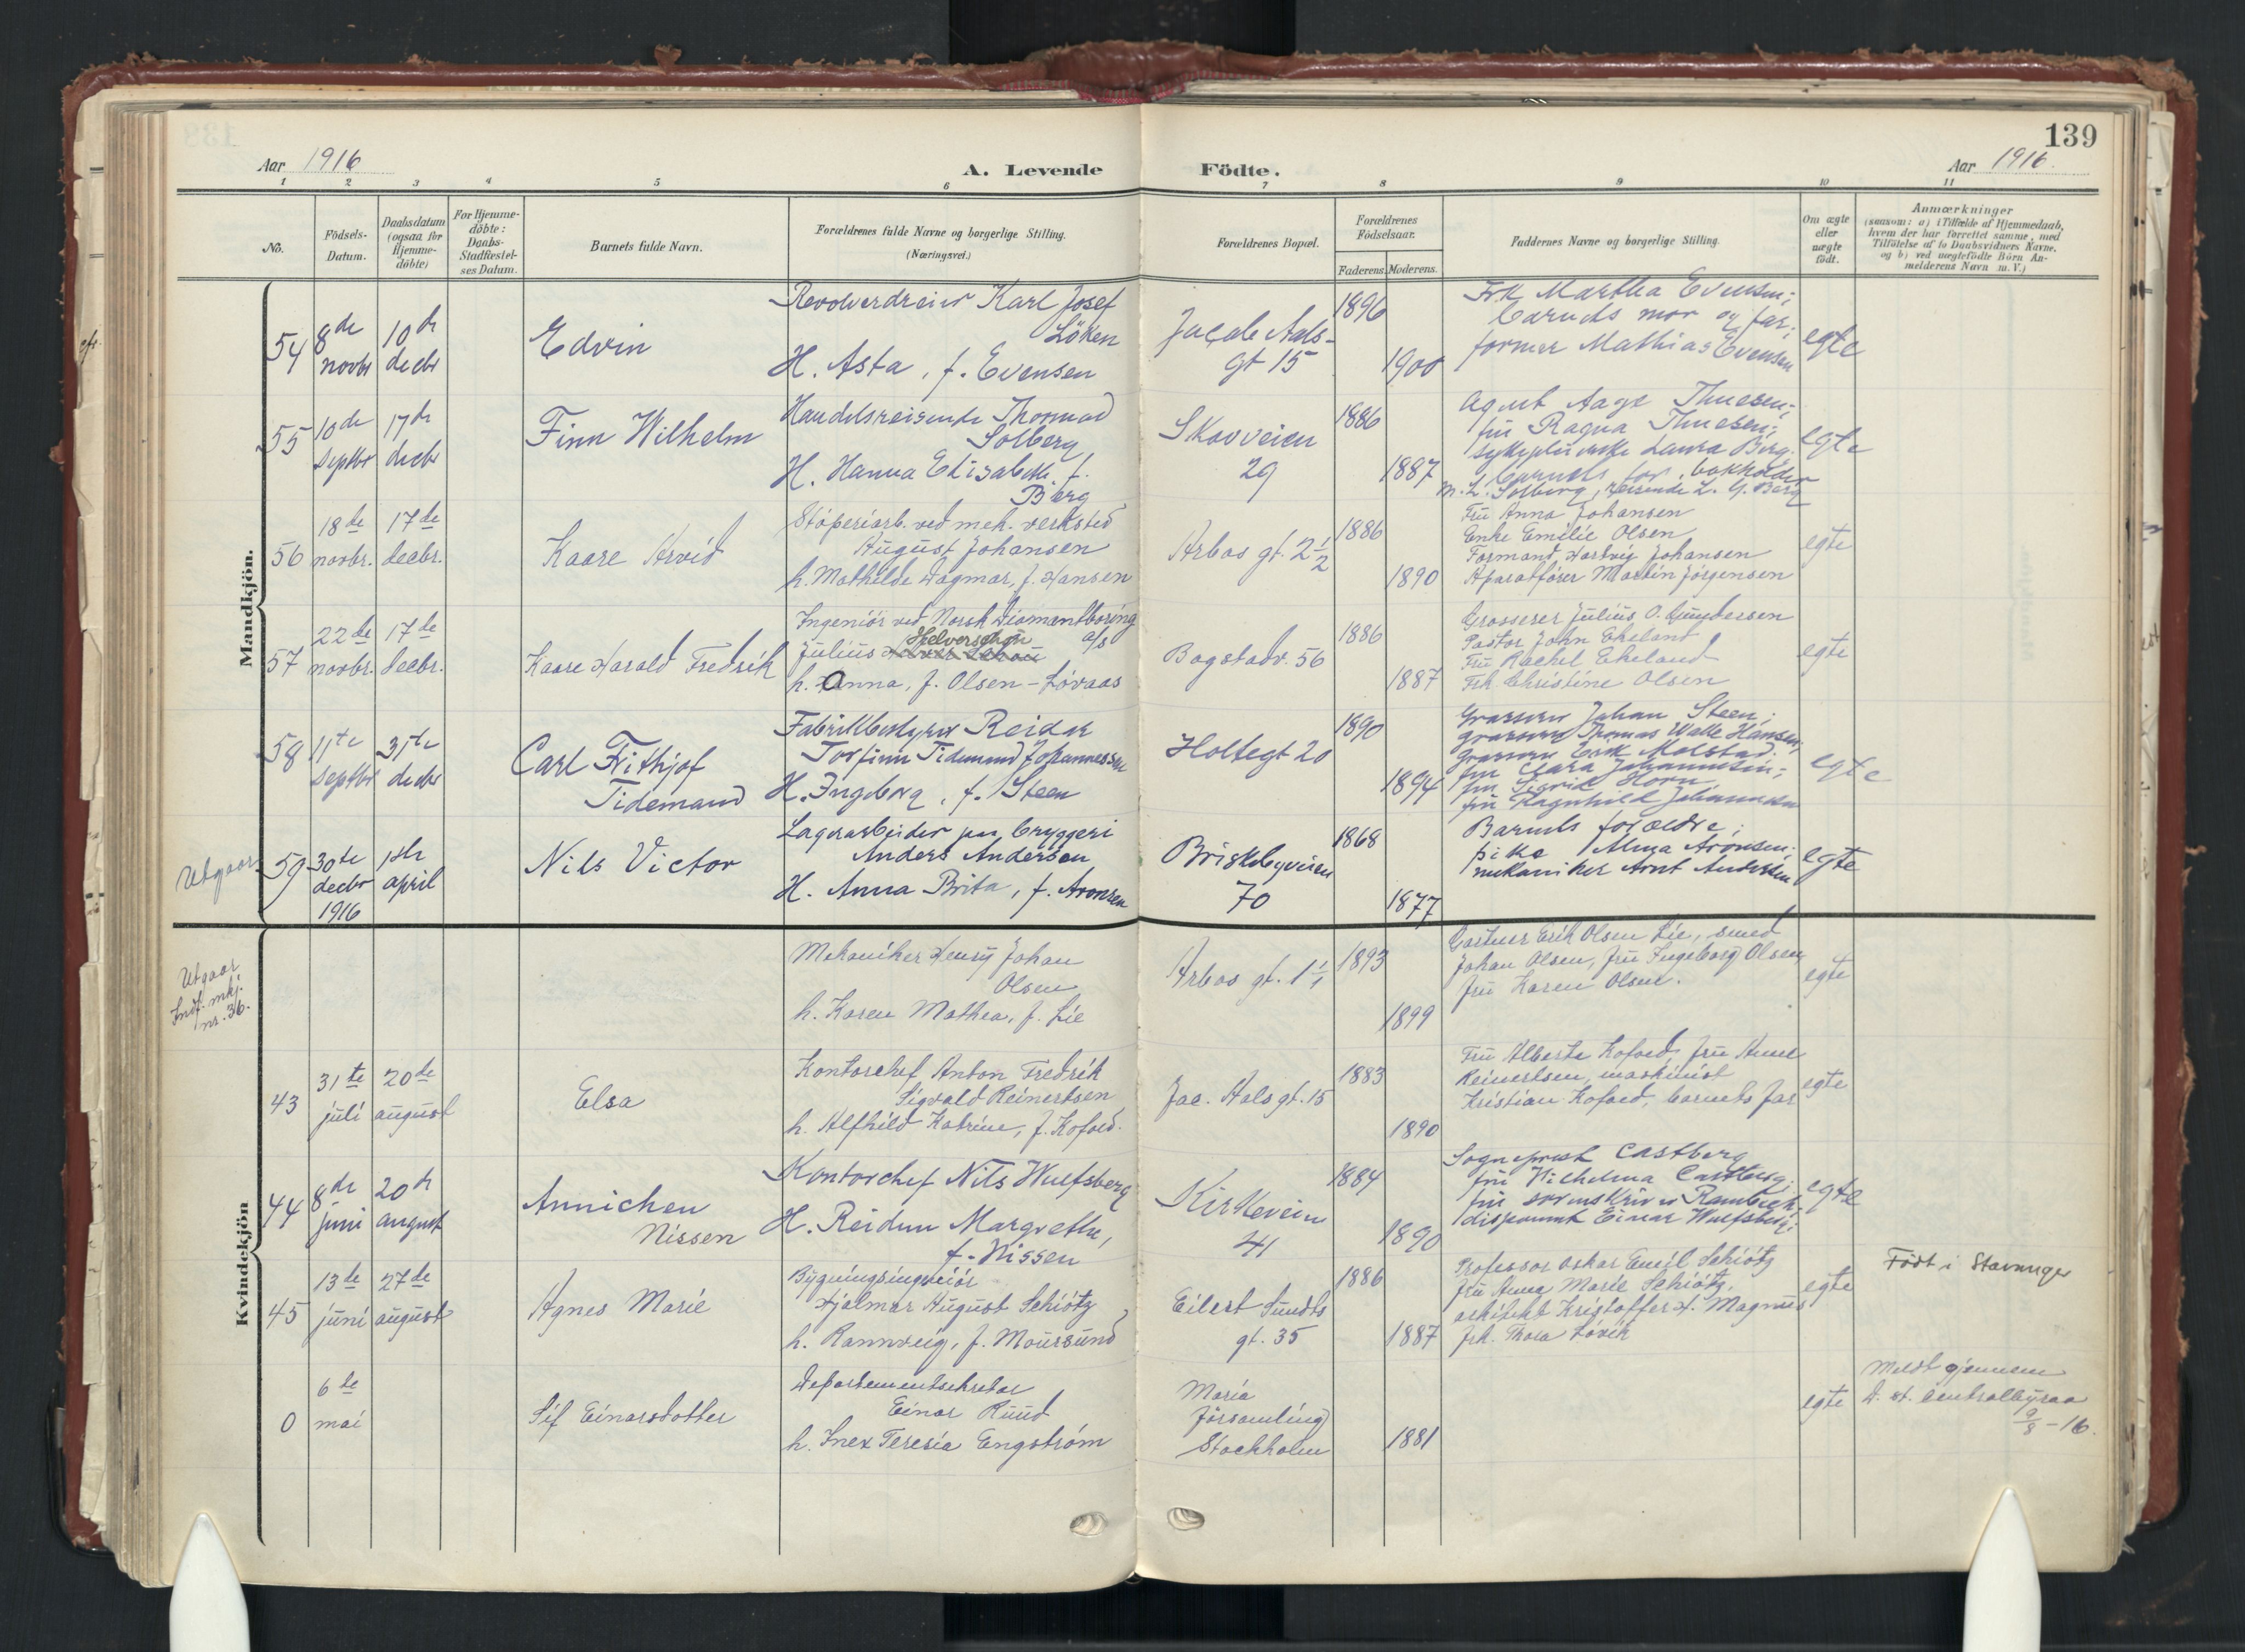 139
Aar 1916
A. Levende Födte.
Aar 1916.
1 2 3 4 5 6 7 8 9 10 11
No.
Födsels-
Datum.
Daabsdatum
(ogsaa for
Hjemme-
döbte)
For Hjemme-
döbte:
Daabs-
Stadfæstel-
ses Datum.
Barnets fulde Navn.
Forældrenes fulde Navne og borgerlige Stilling.
(Næringsvei.)
Forældrenes Bopæl.
Forældrenes
Födselsaar.
Faderens. Moderens.
Faddernes Navne og borgerlige Stilling.
Om ægte
eller
uægte
födt.
Anmærkninger
(saasom: a) i Tilfælde af Hjemmedaab,
hvem der har forrettet samme, med
Tilföielse af to Daabsvidners Navne,
og b) ved uægtefödte Börn An-
melderens Navn m. V.)
Mandkjön.
54
8de
novbr
10de
decbr
Edvin
Revolverdreier Karl Josef
Löken
H. Asta, f. Evensen
Jacob Aals-
gt 15
1896
1900
Frk Martha Evensen;
barnets mor og far;
former Mathias Evensen
egte
55
10de
Septbr
17de
decbr
Finn Wilhelm
Handelsreisende Thormod
Solberg
H. Hanna Elisabeth f.
Berg
Skovveien
29
1886
1887
Agent Aage Thuesen;
fru Ragna Thuesen;
sykepleierske Laura Berg
barnets far, bokholder
M. L. Solberg, reisende L. G. Berg
egte
56
18de
novbr.
17de
decbr.
Kaare Arvid
Stóperiarb. ved mek. verksted
August Johansen
h. Mathilde Dagmar, f. Hansen
Arbos gt. 2 1/2
1886
1890
Fru Anna Johansen
Enke Emilie Olsen
Formand Hartvig Johansen
Aparatförer Martin Jörgensen
egte
57
22de
novbr.
17de
decbr.
Kaare Harald Fredrik
Ingeniör ved Norsk Diamantboring
a/s
Julius Helverschou
h. Anna, f. Olsen-Lövaas
Bogstadv. 56
1886
1887
Grosserer Julius O. Gundersen
Pastor John Ekeland
Fru Rachel Ekeland
Frk. Christine Olsen
egte
58
11te
Septbr
31te
decbr
Carl Frithjof
Tidemand
Fabrikbestyrer Reidar
Torfinn Tidemand Johannessen
H. Ingeborg, f. Steen
Holtegt 20
1890
1894
Grosserer Johan Steen;
grosserer Thomas Walle Hansen;
grosserer Erik Molstad.
fru Clara Johannessen;
fru Sigrid Horn
fru Ragnhild Johannessen
egte
Utgaar
59
30te
decbr
1916
1ste
april
Nils Victor
Lagerarbeider paa bryggeri
Anders Andersen
H. Anna Brita, f. Aronsen
Briskebyveien
70
1868
1877
Barnets forældre;
pike Alma Aronsen
mekaniker Arnt Andersen
egte
Kvindekjön
Utgaar
Indf. mkj.
nr. 36.
Mekaniker Henry Johan
Olsen
h. Karen Mathea, f. Lie
Arbos gt. 1 1/1
1893
1899
Gartner Erik Olsen Lie, smed
Johan Olsen, fru Ingeborg Olsen
fru Karen Olsen.
egte
43
31te
juli
20de
august
Elsa
Kontorchef Anton Fredrik
Sigvald Reinertsen
h. Alfhild Katrine, f. Kofoed.
Jac. Aalsgt. 15
1883
1890
Fru Alberta Kofoed, fru Anne
Reinertsen, maskinist
Kristian Kofoed, barnets far
egte
44
8de
juni
20de
august
Annichen
Nissen
Kontorchef Nils Wulfsberg
H. Reidun Margrethe,
f. Nissen
Kirkeveien
41
1884
1890
Sogneprest Castberg
fru Wilhelmine Castberg;
fru sorenskriver Rambech
disponent Einar Wulfsberg;
egte
45
13de
juni
27de
august
Agnes Marie
Bygningsingeniör
Hjalmar August Schiötz
h. Rannveig, f. Moursund
Eilert Sundts
gt. 35
1886
1887
Professor Oskar Emil Schiötz
fru Anna Marie Schiötz,
arkitekt Kristoffer A. Magnus
frk. Thora Lövik
egte
Födt i Stavanger
0
6te
mai
Sif Einarsdotter
Departementsekretær
Einar Ruud
h. Inez Teresia Engström
Maria
församling
Stockholm
1881
egte
Meldt gjennem
D. st. Centralbyraa
9/8-16.